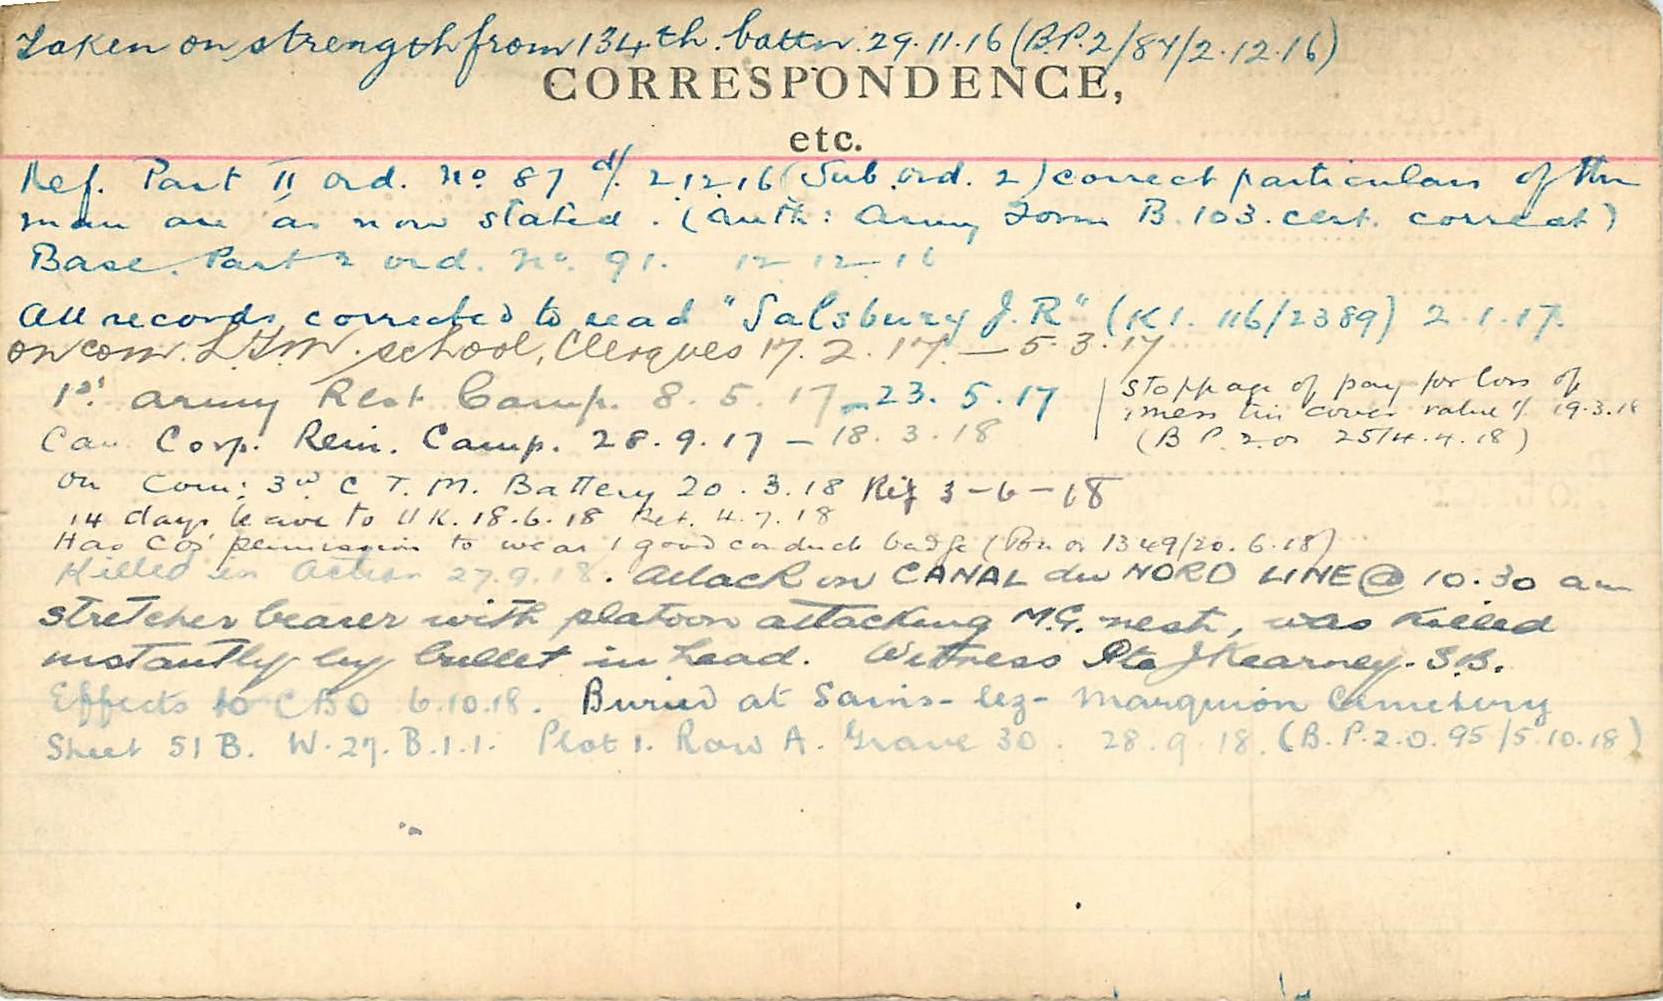 Taken on strength from 134th. battn. 29.11.16 (B.P.2/87/2.12.16)
CORRESPONDENCE,
etc.
Ref. Part II ord. No. 87 d/. 2.12.16 (Sub. ord. 2) correct particulars of this
man are as now stated. (Auth: Army Form B.103. cert. correct)
Base. Part 2 ord. No. 91. 12-12-16
All records corrected to read "Salsbury J.R" (K1. 116/2389) 2.1.17.
on com. L.T.M. school, Clerques 17.2.17. — 5.3.17
1st. Army Rest Camp. 8.5.17 — 23.5.17
Stoppage of pay for loss of
mess tin cover value 19.3.18
(B P. 2 or 25/4.4.18)
Can Corp. Rein. Camp. 28.9.17 — 18.3.18
on Com: 3rd C T. M. Battery 20.3.18 Rej 3-6-18
14 days leave to UK. 18.6.18 Ret. 4.7.18
Has COs' permission to wear 1 good conduct badge (Bn or 1349/20.6.18)
Killed in Action 27.9.18. Attack on CANAL du NORD LINE @ 10.30 am
stretcher bearer with platoon attacking M.G. nest, was killed
instantly by bullet in head. Witness Pte J Kearney. S.B.
Effects to CBO 6.10.18. Buried at Sains-lez-Marquion Cemetery
Sheet 51B. W.27.B.1.1. Plot 1. Row A. Grave 30. 28.9.18. (B.P.2.0.95/5.10.18)